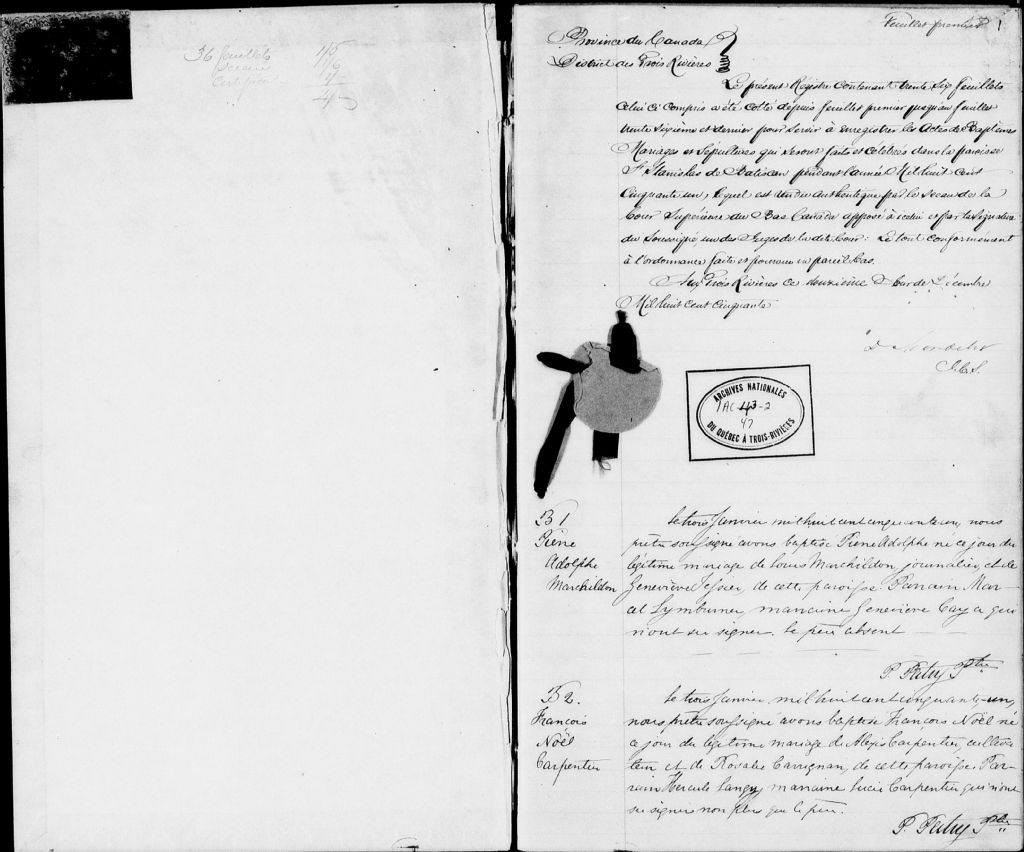 36 feuillets
Feuillet premier 1
Province du Canada
District des Trois Rivières
Le présent Régistre contenant trente Six feuillets
celui ci compris a été cotté depuis feuillet premier jusqu'au feuillet
trente sixième et dernier pour servir à enregistrer les Actes de Baptêmes
Mariages et Sépultures qui seront faits et célébrés dans la paroisse
St Stanislas de Batiscan pendant l'année Mil huit cent
Cinquante un, lequel est rendu authentique par le sceau de la
Cour Supérieure du Bas Canada apposé à icelui et par la signature
du Soussigné un des Juges de la dite Cour: Le tout conformément
à l'ordonnance faite et pourvue en pareil Cas.
Aux Trois Rivières ce deuxième Jour de Décembre
Mil huit cent Cinquante
J.C.S.
ARCHIVES NATIONALES
1AC-43-2
47
DU QUÉBEC À TROIS-RIVIÈRES
B 1
Pierre
Adolphe
Marchildon
Le trois Janvier mil huit cent cinquante un, nous
prêtre soussigné avons baptisé Pierre Adolphe né ce jour du
légitime mariage de Louis Marchildon, journalier, et de
Geneviève Tessier, de cette paroisse. Parrain Mar-
cel Lymburner, marraine Geneviève Cary a qui
n'ont su signer. le père absent
P. Patry Ptre
B 2.
François
Noël
Carpentier
Le trois Janvier mil huit cent cinquante-un,
nous prêtre soussigné avons baptisé François Noël né
ce jour du légitime mariage de Alexis Carpentier, cultiva-
teur et de Rosalie Carignan, de cette paroisse. Par-
rain Hercule Langy, marraine Lucie Carpentier qui n'ont
su signer non plus que le père.
P. Patry Ptre